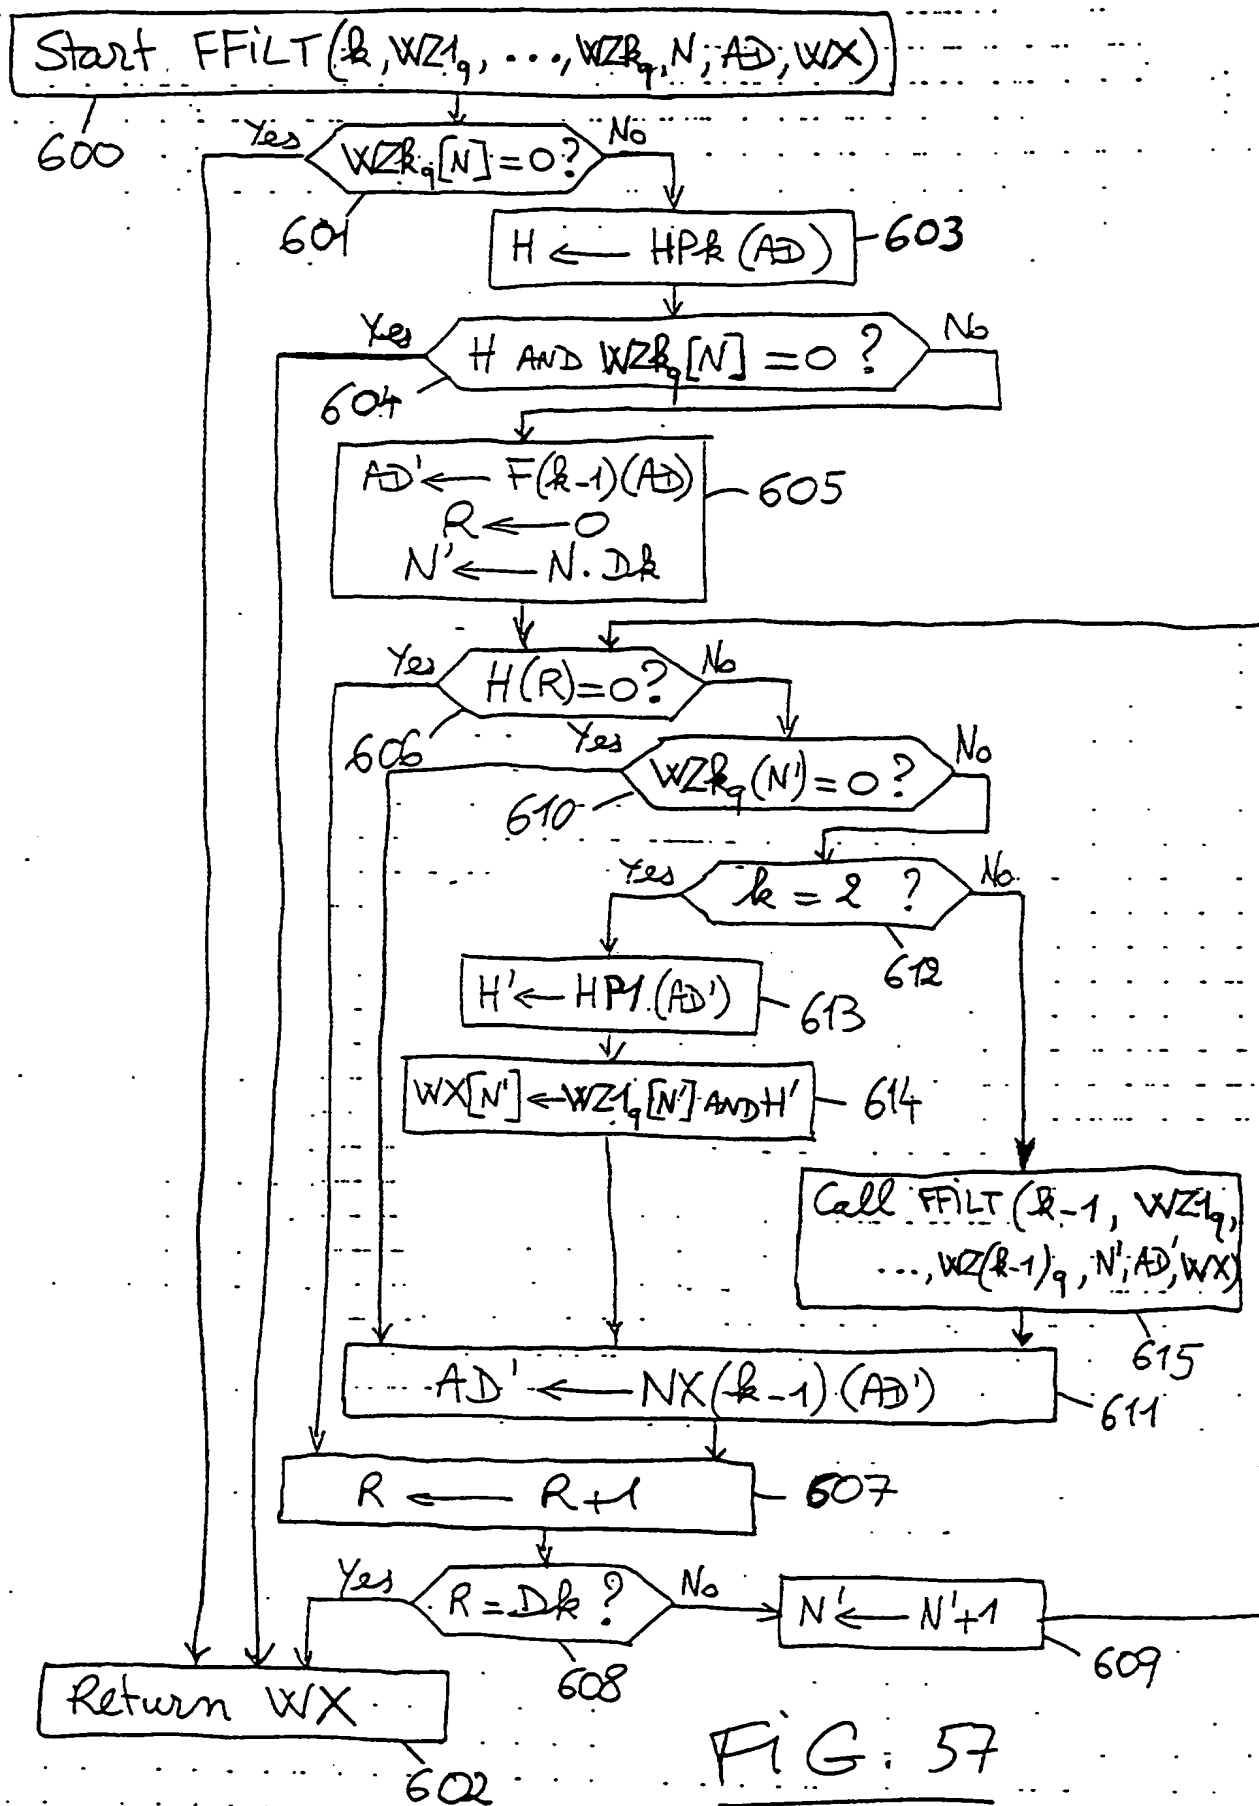 Start FFILT(k, WZ1q, ..., WZkq, N, AD, WX)
600
Yes
WZkq[N] = 0?
No
601
H ← HPk (AD)
603
Yes
H AND WZkq[N] = 0 ?
No
604
AD' ← F(k-1)(AD)
R ← 0
N' ← N. Dk
605
Yes
H(R)=0?
No
606
Yes
WZkq(N') = 0 ?
No
610
Yes
k = 2 ?
No
612
H' ← HP1 (AD')
613
WX[N'] ← WZ1q[N'] AND H'
614
Call FFILT (k-1, WZ1q,
..., WZ(k-1)q, N', AD', WX)
615
AD' ← NX(k-1) (AD')
611
R ← R+1
607
Yes
R = Dk ?
No
608
N' ← N'+1
609
Return WX
602
FIG. 57